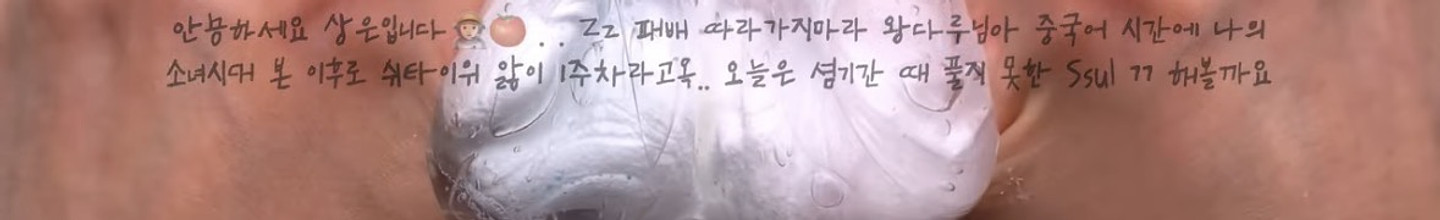 안뇽하세요 상은입니다👩🏼‍🌾🍅.. Zz 패배 따라가지마라 왕다루님아 중국어 시간에 나의
소녀시대 본 이후로 쉬타이위 앓이 1주차라고욕.. 오늘은 셤기간 때 풀지 못한 Ssul ㄱㄱ 해볼까요